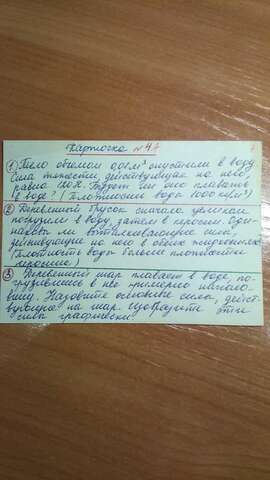 Карточка №47
① Тело объемом 0,01м³ опустили в воду
Сила тяжести, действующая на него,
равна 120Н. Будет ли оно плавать
в воде? (Плотность воды 1000 кг/м³)
② Деревянный брусок сначала целиком
погрузили в воду, затем в керосин. Оди-
наковы ли выталкивающие силы,
действующие на него в обеих жидкостях
(Плотность воды больше плотности
керосина)
③ Деревянный шар плавает в воде, по-
грузившись в нее примерно наполо-
вину. Назовите основные силы, дейст-
вующие на шар. Изобразите эти
силы графически.